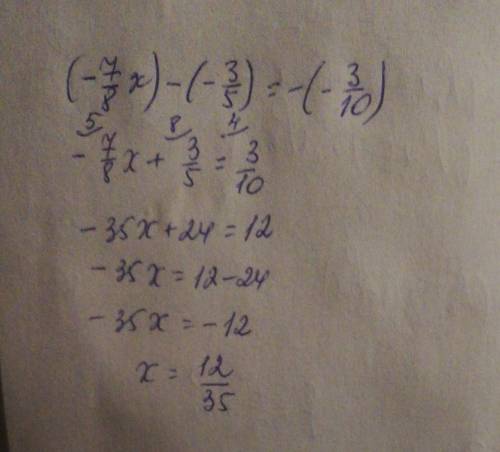 (-7/8 x) - (-3/5) = -(-3/10)
5 8 4
-7/8 x + 3/5 = 3/10
-35x + 24 = 12
-35x = 12 - 24
-35x = -12
x = 12/35